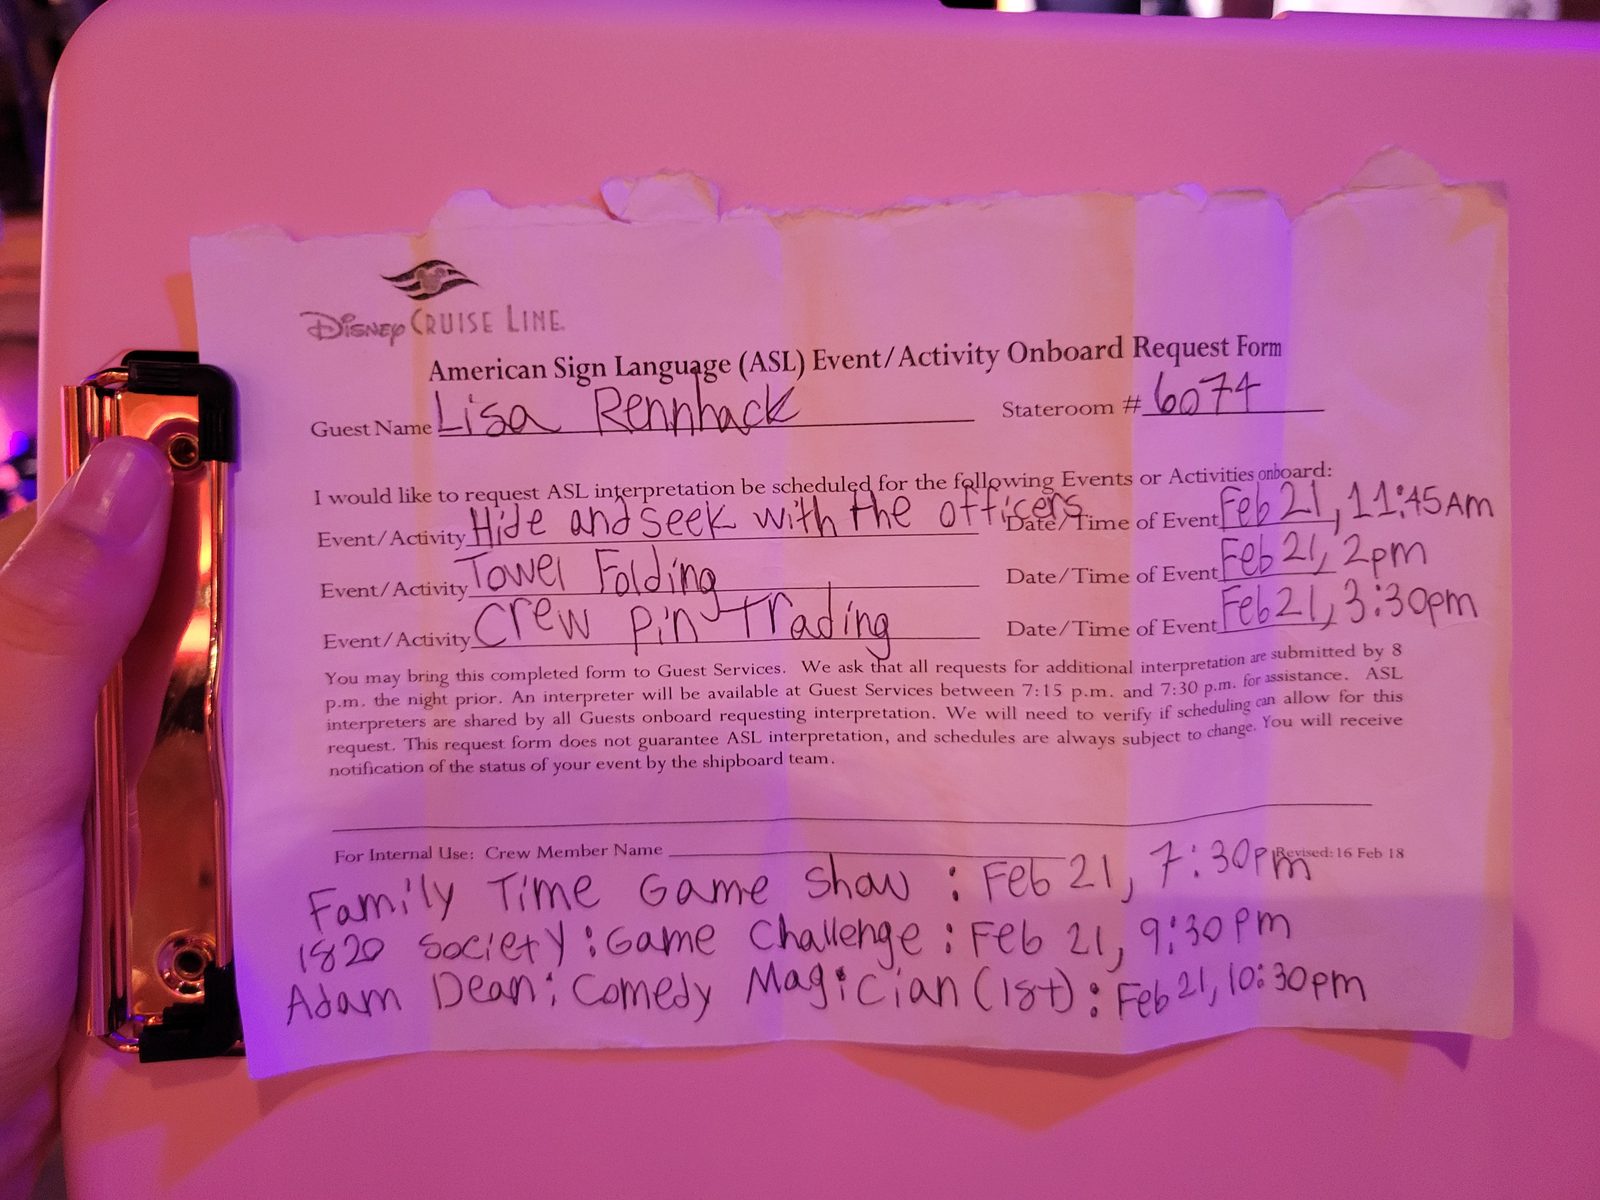 DISNEY CRUISE LINE
American Sign Language (ASL) Event/Activity Onboard Request Form
Guest Name Lisa Rennhack Stateroom # 6074
I would like to request ASL interpretation be scheduled for the following Events or Activities onboard:
Event/Activity Hide and seek with the officers Date/Time of Event Feb 21, 11:45 AM
Event/Activity Towel Folding Date/Time of Event Feb 21, 2pm
Event/Activity Crew Pin Trading Date/Time of Event Feb 21, 3:30pm
You may bring this completed form to Guest Services. We ask that all requests for additional interpretation are submitted by 8
p.m. the night prior. An interpreter will be available at Guest Services between 7:15 p.m. and 7:30 p.m. for assistance. ASL
interpreters are shared by all Guests onboard requesting interpretation. We will need to verify if scheduling can allow for this
request. This request form does not guarantee ASL interpretation, and schedules are always subject to change. You will receive
notification of the status of your event by the shipboard team.
For Internal Use: Crew Member Name Revised: 16 Feb 18
Family Time Game Show : Feb 21, 7:30pm
1820 Society : Game Challenge : Feb 21, 9:30pm
Adam Dean : Comedy Magician (1st) : Feb 21, 10:30pm